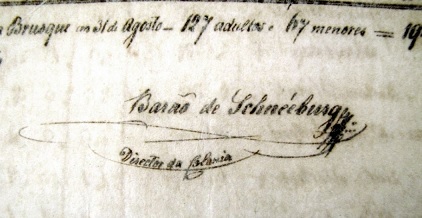 Brusque em 31 de Agosto - 127 adultos e 67 menores = 19
Barão de Schnéeburg
Director da Colonia